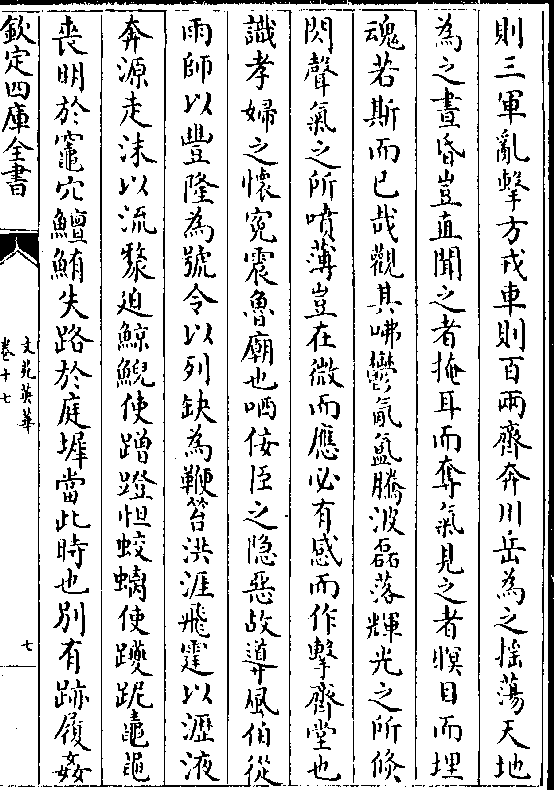 則三軍亂擊方戎車則百兩齊奔川岳為之揺蕩天地
為之晝昏豈直聞之者掩耳而奪氣見之者瞑目而埋
魂若斯而已哉觀其咈鬱氤氲騰波磊落輝光之所倐
閃聲氣之所噴薄豈在微而應必有感而作擊齊堂也
識孝婦之懷寃震魯廟也哂佞臣之隐惡故導風伯從
雨師以豐隆為號令以列缺為鞭笞洪涯飛霆以瀝液
奔源走沫以流漦迫鯨鯢使蹭蹬怛蛟螭使躨跜黿黽
喪明於竈穴鱣鮪失路於庭墀當此時也别有跡履姦
欽定四庫全書
文苑英華
卷十七
七